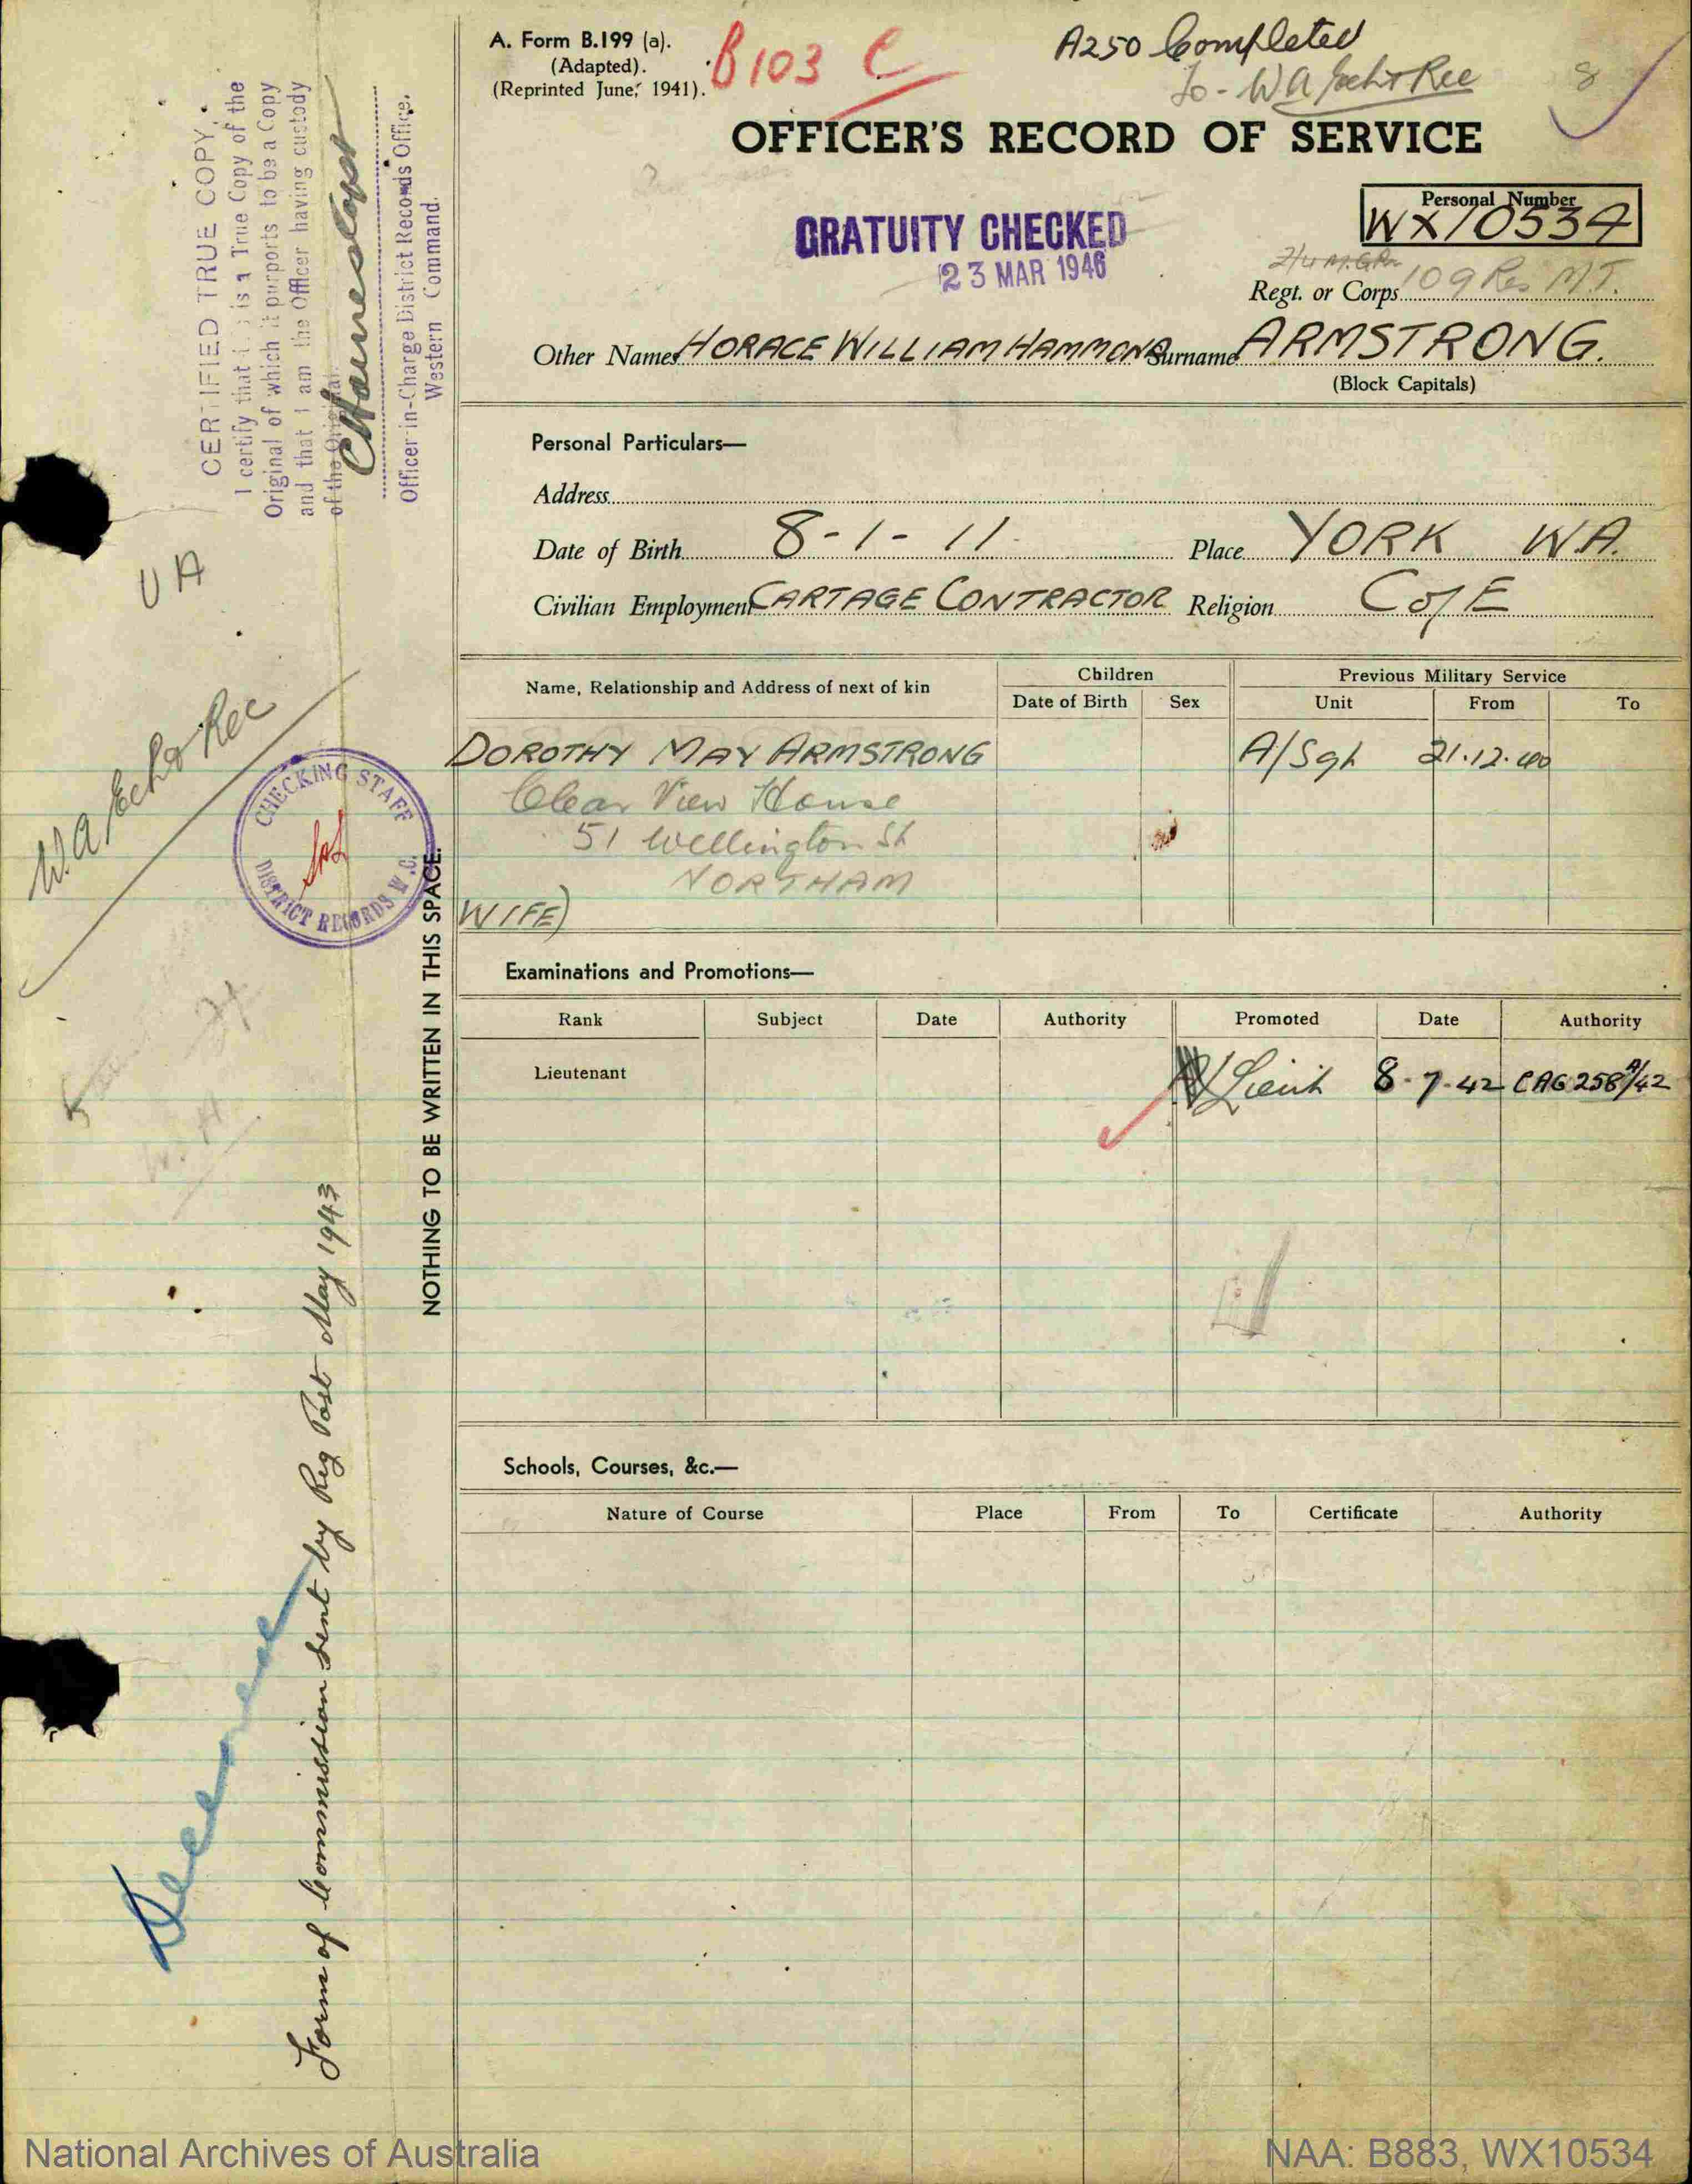 A. Form B.199 (a).
(Adapted).
(Reprinted June, 1941).
B103 C
A250 Completed
to - WA Ech & Rec
8
OFFICER'S RECORD OF SERVICE
GRATUITY CHECKED
23 MAR 1946
Personal Number
WX10534
2/4 M.G. Bn
Regt. or Corps 109 Res M.T.
Other Names HORACE WILLIAM HAMMOND Surname ARMSTRONG.
(Block Capitals)
Personal Particulars—
Address
Date of Birth 8-1-11 Place YORK W.A.
Civilian Employment CARTAGE CONTRACTOR Religion C of E
Name, Relationship and Address of next of kin
Children
Date of Birth Sex
Previous Military Service
Unit From To
DOROTHY MAY ARMSTRONG A/Sgt 21.12.40
Clear View House
51 Wellington St
NORTHAM
WIFE)
Examinations and Promotions—
Rank Subject Date Authority Promoted Date Authority
Lieutenant Lieut 8-7-42 CAG 258A/42
Schools, Courses, &c.—
Nature of Course Place From To Certificate Authority
CERTIFIED TRUE COPY.
I certify that this is a True Copy of the
Original of which it purports to be a Copy
and that I am the Officer having custody
of the Original.
Officer-in-Charge District Records Office,
Western Command.
UA
W.A Ech & Rec
CHECKING STAFF
DISTRICT RECORDS W.C.
NOTHING TO BE WRITTEN IN THIS SPACE.
Form of Commission sent by Reg Post May 1943
National Archives of Australia
NAA: B883, WX10534